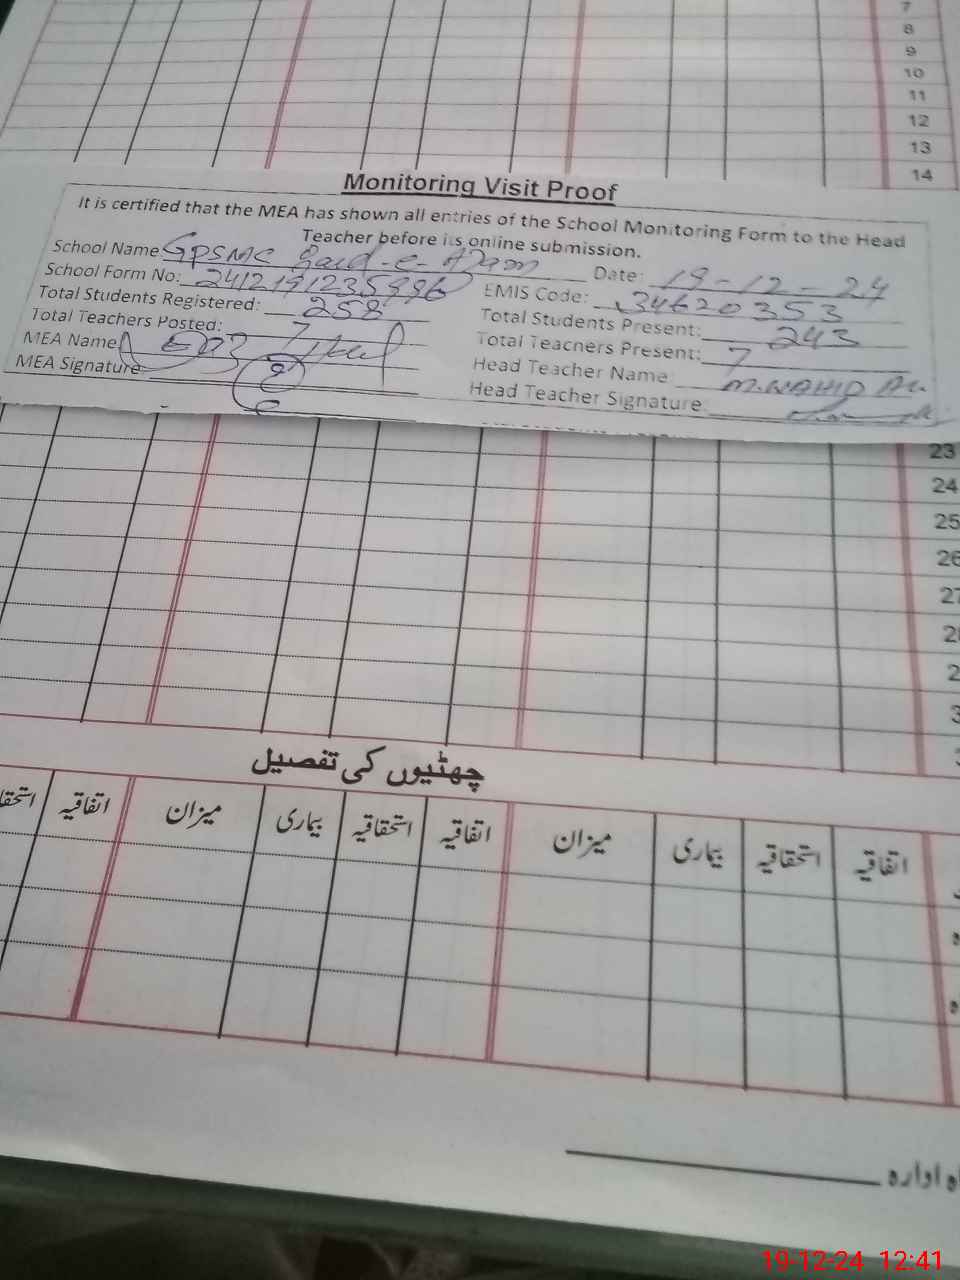 7
8
9
10
11
12
13
14
Monitoring Visit Proof
It is certified that the MEA has shown all entries of the School Monitoring Form to the Head
Teacher before its online submission.
School Name GPSMC Quid-e-Azam Date: 19-12-24
School Form No: 2412191235996 EMIS Code: 34620353
Total Students Registered: 258 Total Students Present: 243
Total Teachers Posted: 7 Total Teachers Present: 7
MEA Name Head Teacher Name: M.WAHID
MEA Signature: Head Teacher Signature:
23
24
25
26
27
چھٹیوں کی تفصیل
اتفاقیہ استحقاقیہ بیماری میزان اتفاقیہ استحقاقیہ بیماری میزان اتفاقیہ
ادارہ
19-12-24 12:41